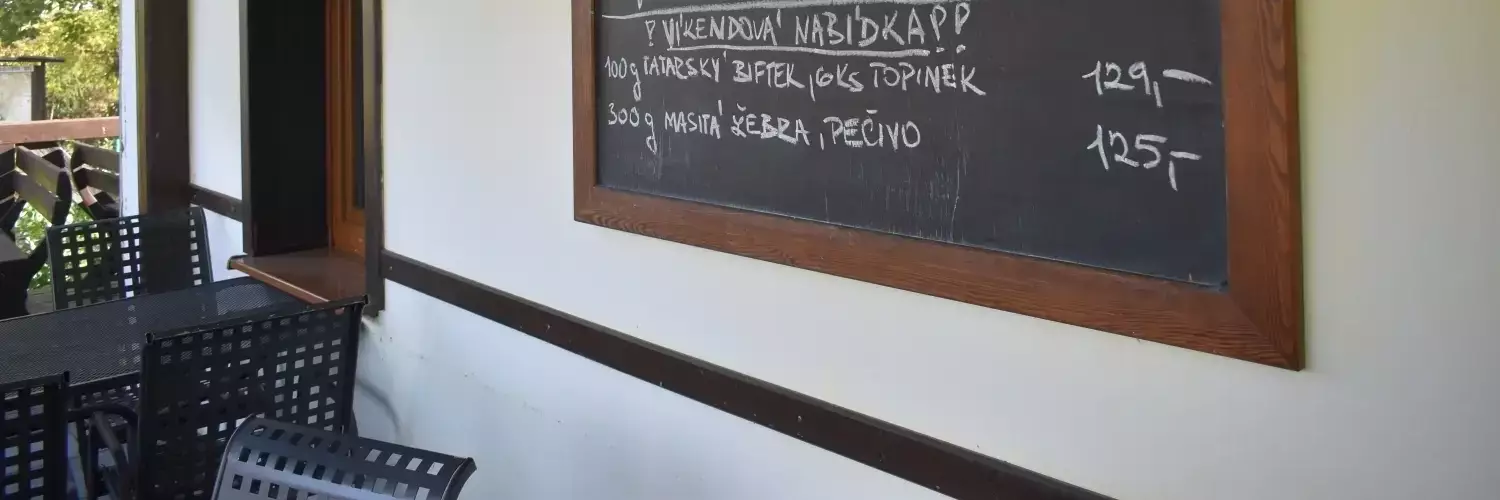 ! VÍKENDOVÁ NABÍDKA !!
100g TATARSKÝ BIFTEK, 6KS TOPINEK 129,-
300g MASITÁ ŽEBRA, PEČIVO 125,-